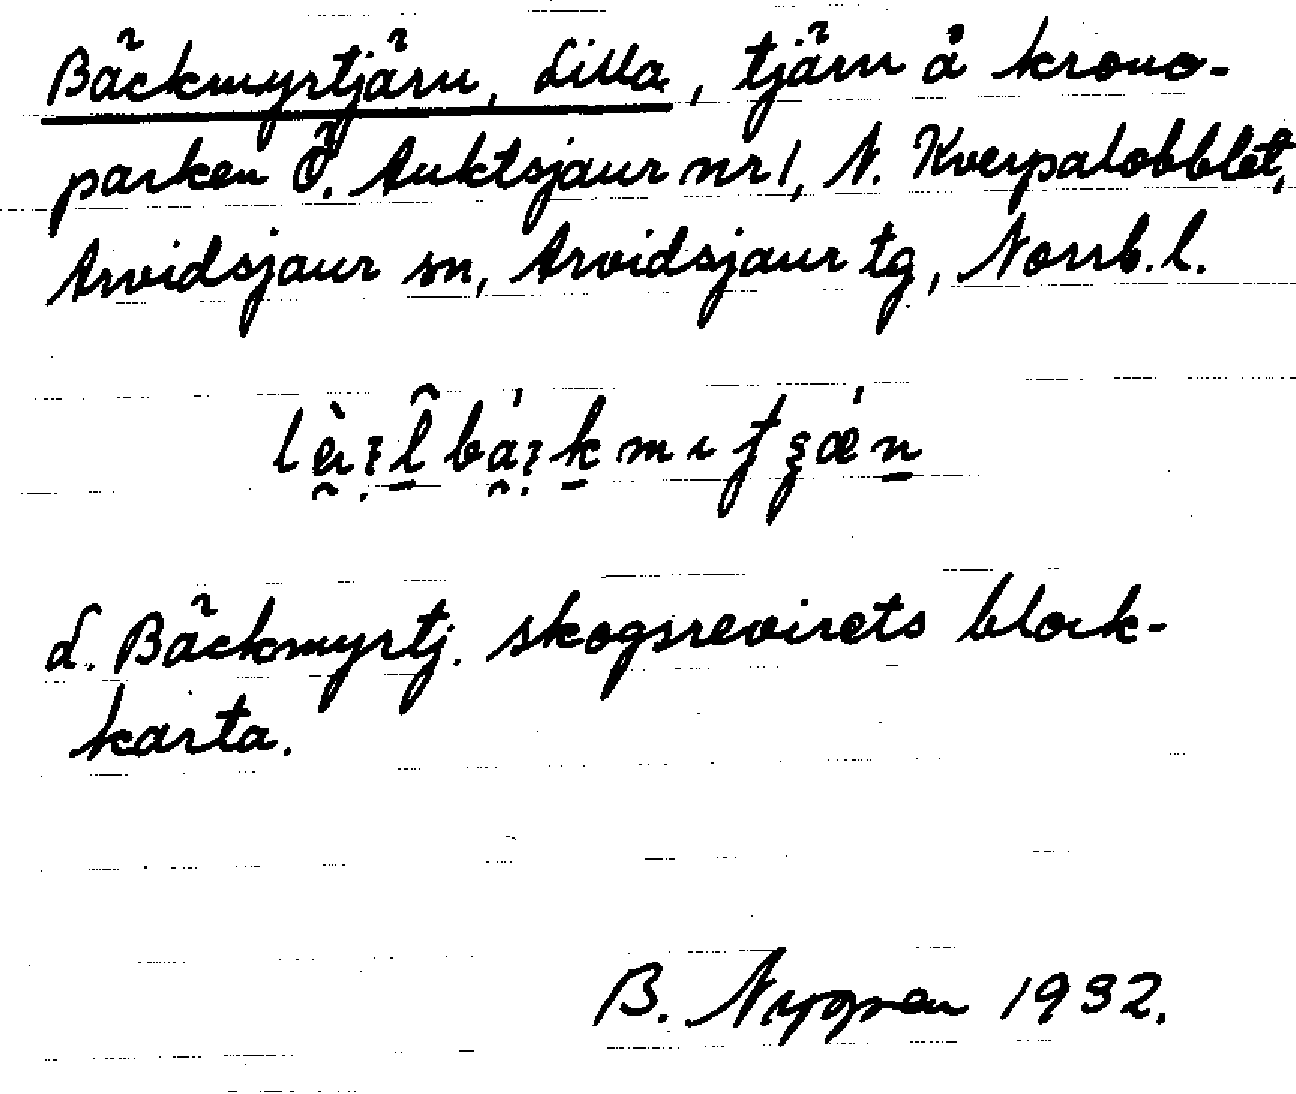 Bäckmyrtjärn, Lilla, tjärn å krono-
parken Ö. Auktsjaur nr 1, N. Kverpalobblet,
Arvidsjaur sn, Arvidsjaur tg, Norrb. l.
L. Bäckmyrtj. skogsrevirets block-
karta.
B. Nygren 1932.